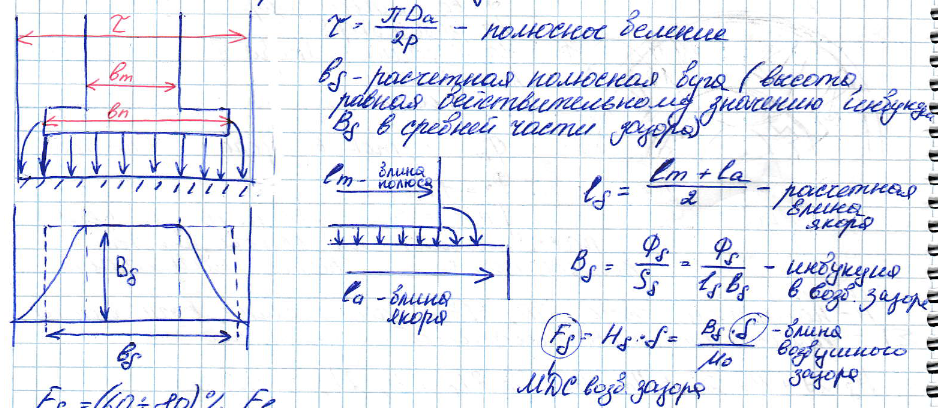 τ
bm
bп
Bδ
bδ
τ = πDa / 2p - полюсное деление
bδ - расчетная полюсная дуга (высота,
равная действительному значению индукции
Bδ в средней части зазора)
lm - длина
полюса
la - длина
якоря
lδ = (lm + la) / 2 - расчетная
длина
якоря
Bδ = Фδ / Sδ = Фδ / lδ bδ - индукция
в возд. зазоре
Fδ = Hδ · δ = Bδ · δ / μ0 - длина
воздушного
зазора
МДС возд зазора